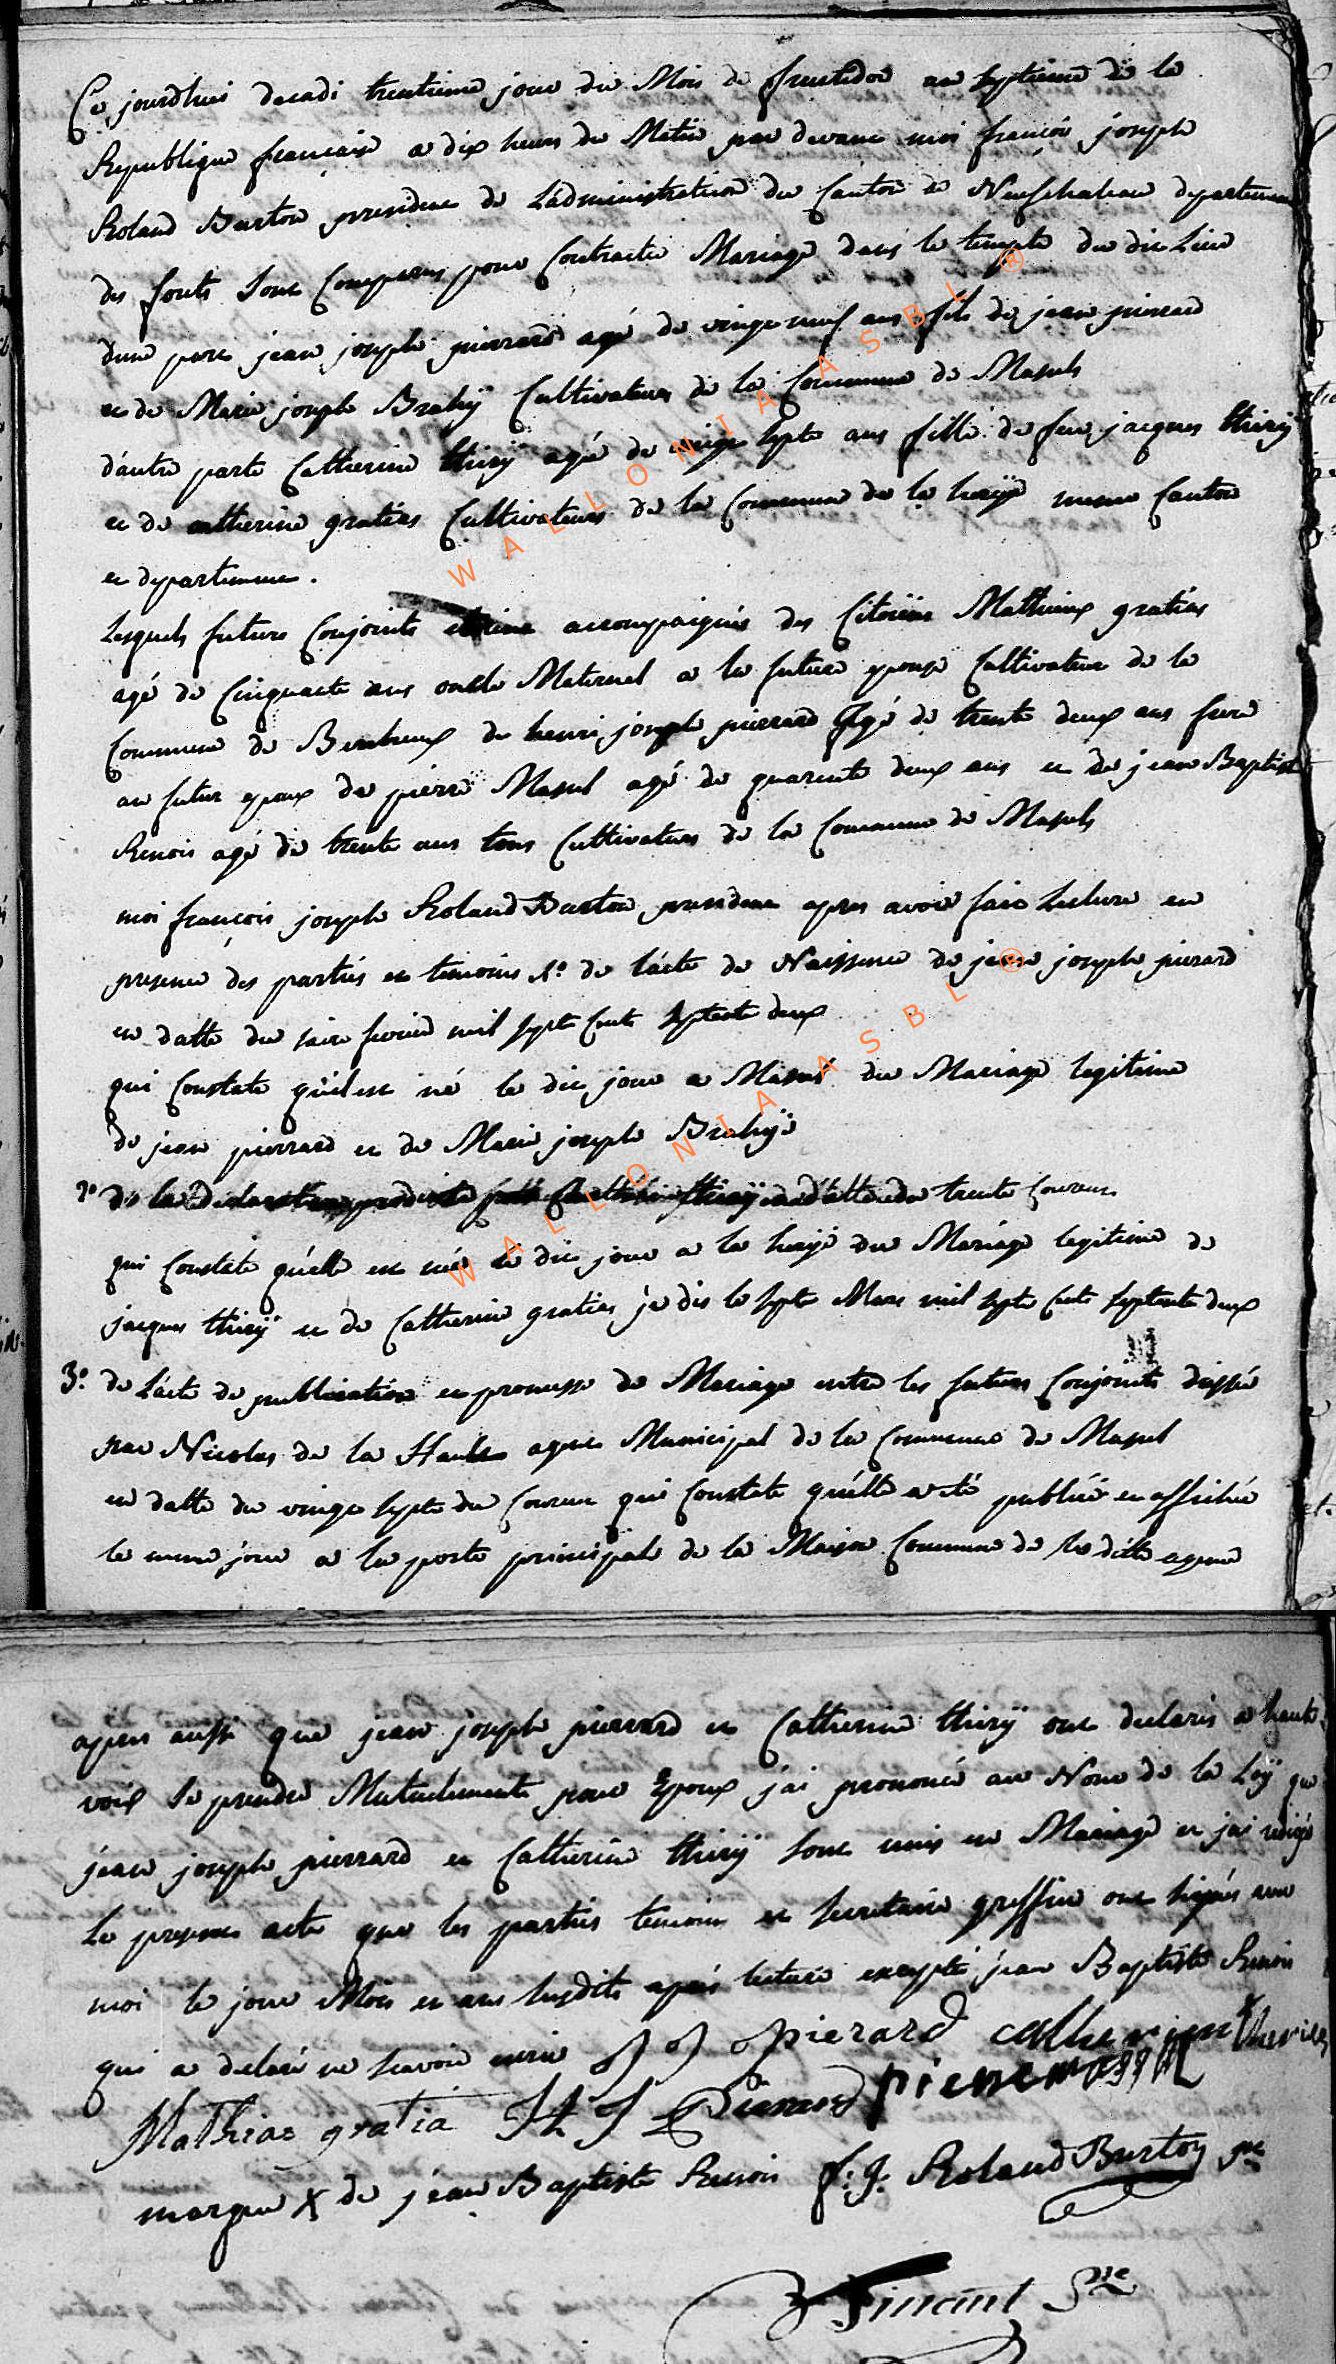 Ce jourdhui decadi trentieme jour du Mois de fructidor an septieme de la
Republique francaise a dix heurs du Matin par devant moi françois joseph
Roland Burton president de Ladministration du Canton de Neufchateau departement
des forets sont Comparus pour Contracter Mariage dans le temple du dit Lieu
dune part jean joseph pierrard agé de vingt neuf ans fils de jean pierrard
et de Marie joseph Brahÿ Cultivateurs de la Commune de Massul
dautre parte Catherine thirÿ agé de vingt septe ans fille de feu jacques thirÿ
et de catherine gratias Cultivateurs de la Commune de la heaÿe meme Canton
et departement.
Lesquels futurs Conjoints accompaignés des Citoiens Mathieux gratias
agé de Cinquante ans oncle Maternel a la future epouse Cultivateur de la
Commune de henri joseph pierrard Agé de trente deux ans frere
au futur epoux de pierre Massul agé de quarente deux ans et de jean Baptiste
Renois agé de trente ans tous Cultivateurs de la Commune de Massul
moi françois joseph Roland Burton president apres avoir fait Lecture en
presence des parties et temoins 1º de lácte de Naissence de jean joseph pierard
en datte du mil septe Cents septente deux
qui Constate quil est né le dit jour a Massul du Mariage legitime
de jean pierrard et de Marie joseph Brahÿe
2º de la Declaration produite par Catherine thirÿ en datte du trente Courant
qui Constate quélle est née le dit jour a la heaÿe du Mariage legitime de
jacques thirÿ et de Catherine gratias je dis le septe Mars mil septe Cents septente deux
3º de Lácte de publication et promesse de Mariage entre les futurs Conjoints dressé
par Nicolas de la Haulx agent Municipal de la Commune de Massul
en datte du vingt septe du Courant qui Constate quélle a eté publiée et affichée
le meme jour a la porte principale de la Maison Commune de la ditte agence
apres aussi que jean joseph pierrard et Catherine thirÿ ont declarés a haute
voix se prendre Mutuelemente pour Epoux j'ai prononcé au Nom de la Loÿ que
jean joseph pierrard et Catherine thirÿ sont unis en Mariage et jai redigé
Le present acte que les parties temoins et secretaire greffier ont signés avec
moi le jour Mois et ans susdits apres lecture excepté jean Baptiste Renois
qui a declaré ne scavoir ecrire J J pierard catherienne thirien
Mathias gratia H J Pierard pierre massul
marque X de jean Baptiste Renois f: J: Roland Burton pnt
Vincent Sre
WALLONIA ASBL ®
WALLONIA ASBL ®